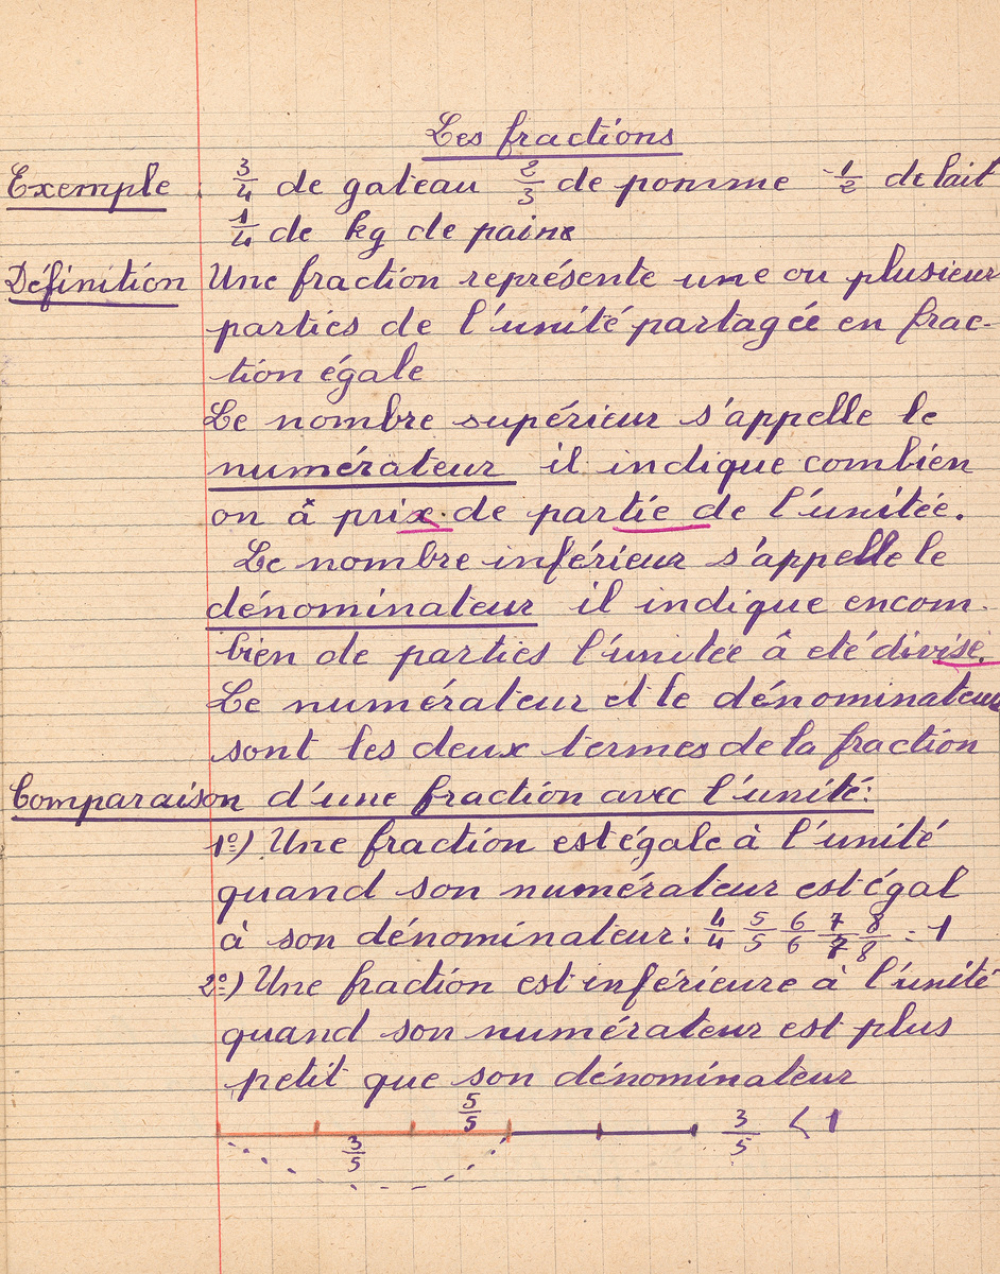 Les fractions
Exemple . 3/4 de gateau 2/3 de pomme - 1/2 de lait
1/4 de kg de pain
Définition Une fraction représente une ou plusieur
parties de l'unité partagée en frac-
tion égale
Le nombre supérieur s'appelle le
numérateur il indique combien
on â prix de partie de l'unitée.
Le nombre inférieur s'appelle le
dénominateur il indique encom-
bien de parties l'unitee â eté divisé.
Le numérateur et le dénominateur
sont les deux termes de la fraction
Comparaison d'une fraction avec l'unité:
1º) Une fraction est égale à l'unité
quand son numérateur est égal
à son dénominateur: 4/4 5/5 6/6 7/7 8/8 = 1
2º) Une fraction est inférieure à l'unité
quand son numérateur est plus
petit que son dénominateur
5/5
3/5 3/5 < 1